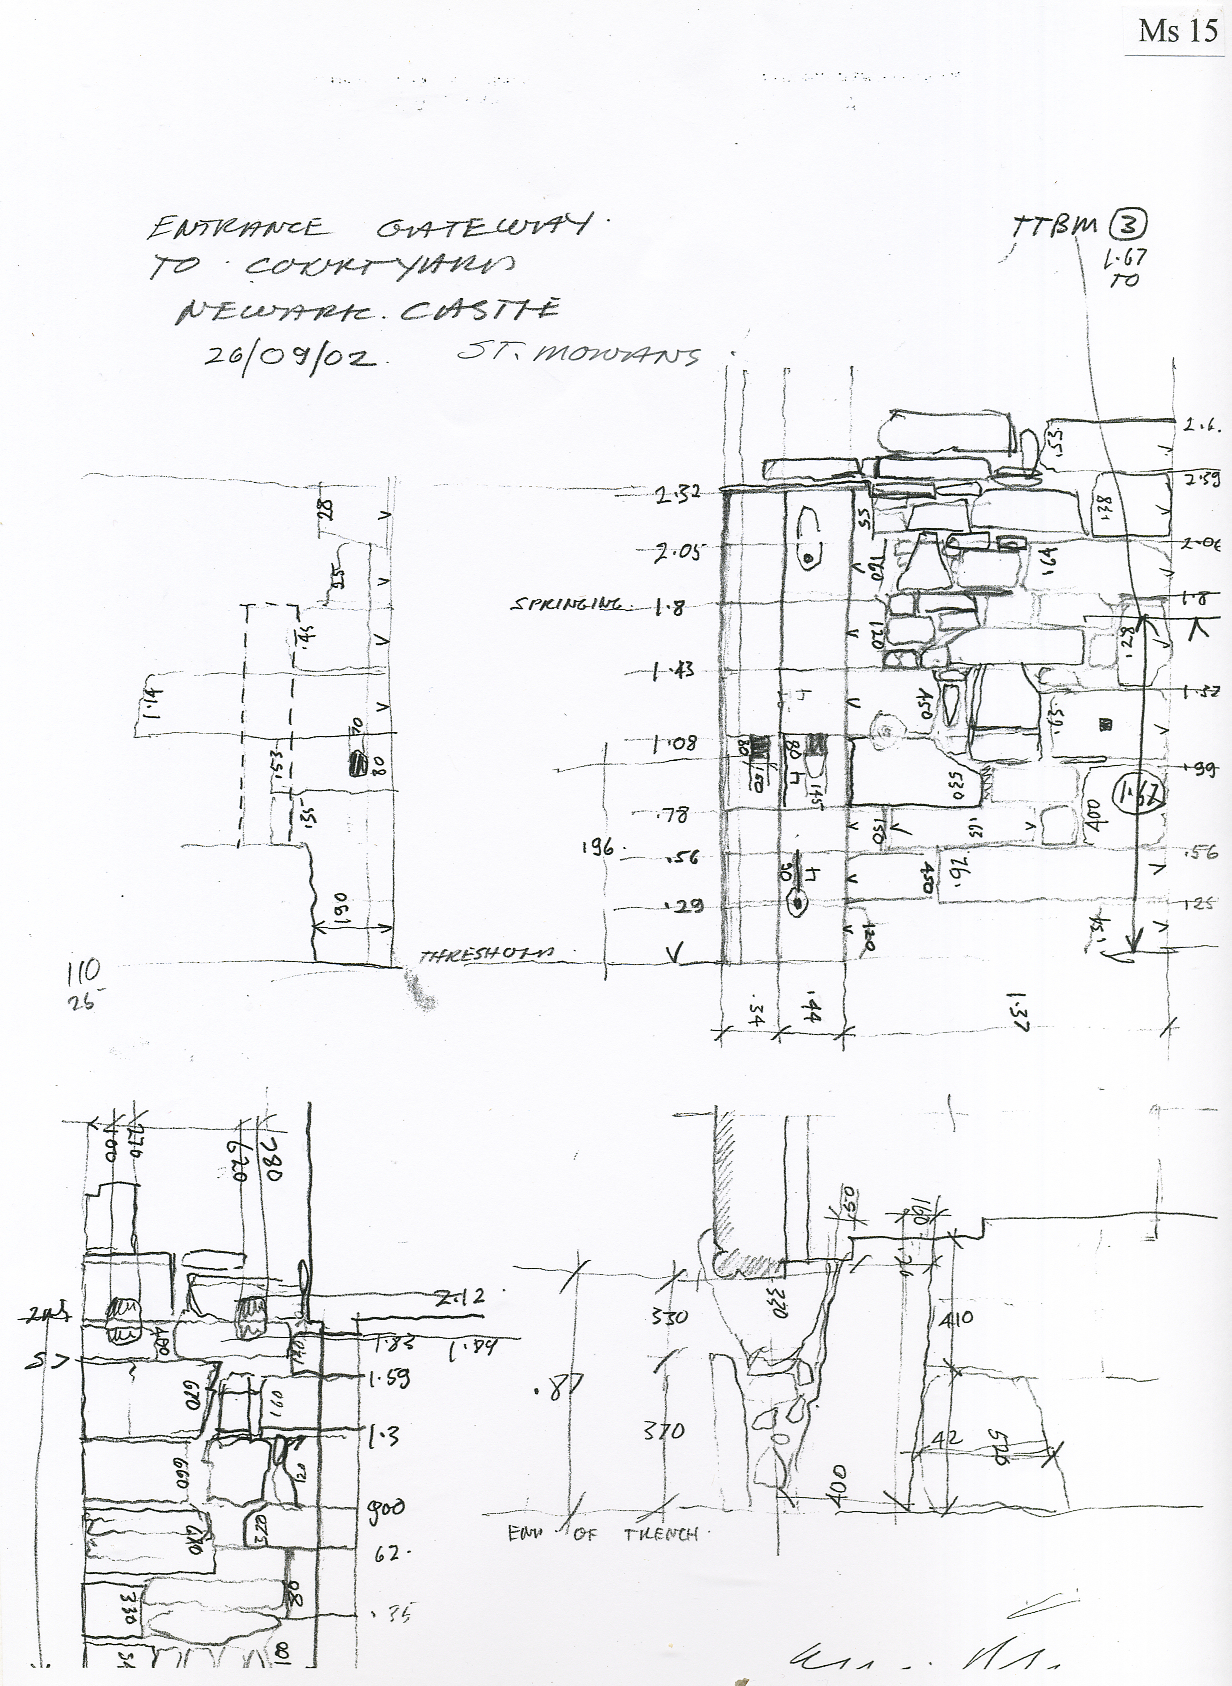 Ms 15
ENTRANCE GATEWAY
TO COURTYARD
NEWARK. CASTLE
26/09/02. ST. MONANS
TTBM 3
1.67
TO
2.6.
.53
28
2.32
2.39
.38
55
2.05
2.06
.25
160
.64
SPRINGING 1.8
1.8
.45
120
.28
1.43
1.14
450
.63
70
1.08
80
80
.99
.153
80
150
145
530
1.67
.35
.78
400
150
.56
.56
196.
90
450
.76
.29
.125
190
120
THRESHOLD
110
25
.34
.44
1.37
100
270
620
280
150
160
2.12
400
140
1.83
1.59
670
160
1.3
660
120
900
320
62.
330
80
.35
100
330
330
410
.87
370
42
400
END OF TRENCH